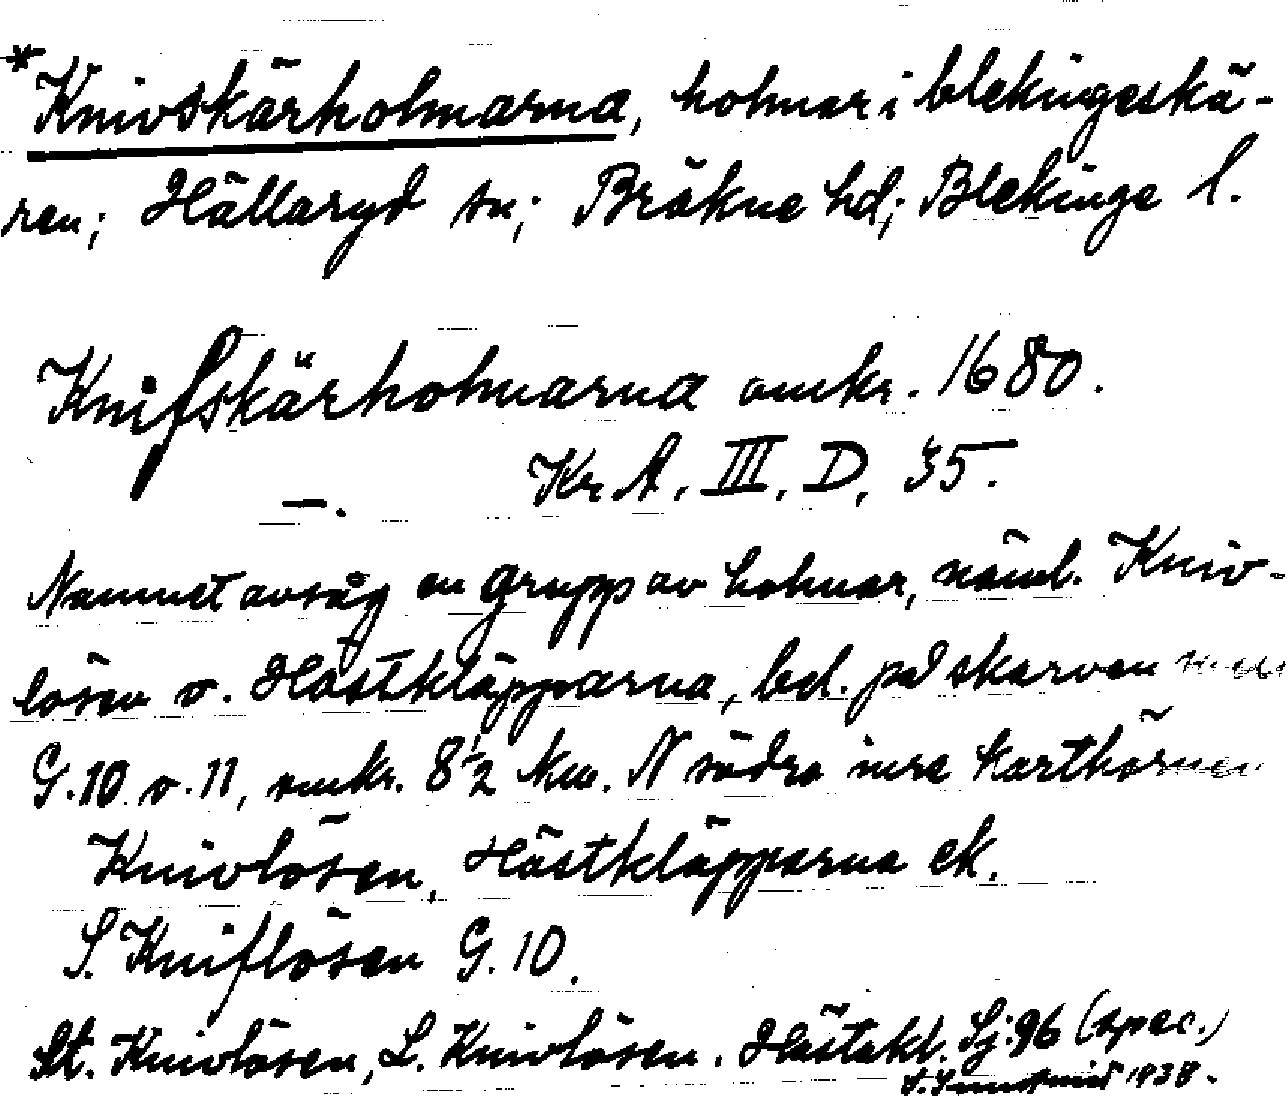 *Knivskärholmarna, holmar i blekingeskä-
ren; Hällaryd sn; Bräkne hd; Blekinge l.
Knifskärholmarna omkr. 1680.
—. Kr. A. III. D. 35.
Namnet avsåg en grupp av holmar, näml. Kniv-
lösen o. Hästkläpparna, bel. på skarven
G. 10 o. 11, omkr. 8½ km. N södra inre karthörnen
Knivlösen, Hästkläpparna ek.
S. Kniflösen G. 10.
St. Knivlösen, L. Knivlösen. Hästekl. Sj: 96 (spec.)
1938.